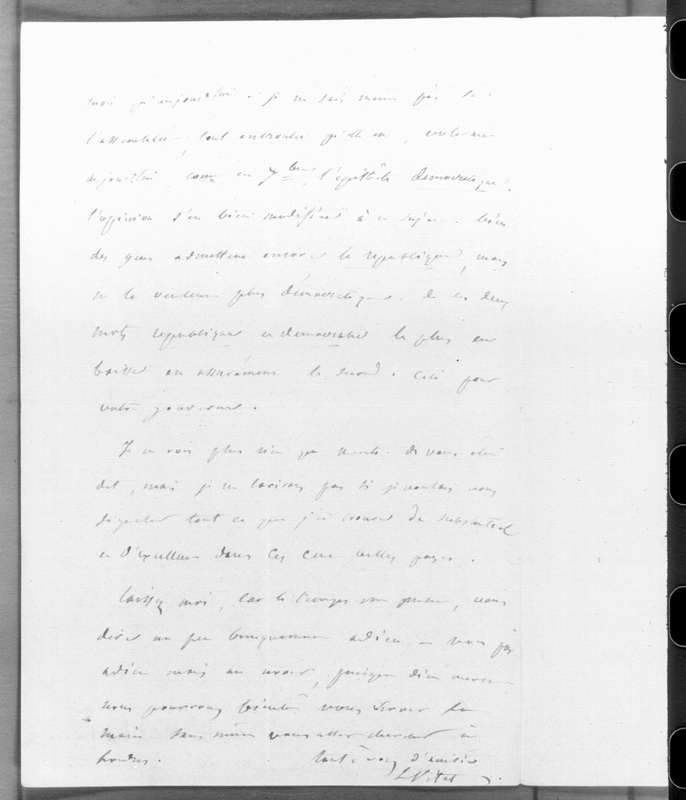 mois qu'aujourd'hui. Je ne sais même pas si
l'assemblée, tout entière qu'elle est, voterait
aujourd'hui, comme en 7bre, l'épithète démocratique.
l'opinion s'est bien modifiée à ce sujet. bien
des gens admettent encore la republique, mais
ne la veulent plus démocratique. de ces deux
mots republique et democratie le plus en
baisse est assurément le second. Ceci pour
votre gouverne.
Je ne vois plus rien qui mérite de vous être
dit, mais je ne tarirais pas si je voulais vous
dire tout ce que j'ai trouvé de substantiel
et d'excellent dans ces cent belles pages.
laissez moi, car le temps me presse, vous
dire un peu brusquement adieu — non pas
adieu mais au revoir, puisque dieu merci
nous pourrons bientôt vous serrer la
main sans même vous aller chercher à
Londres. tout à vous d'amitié
L Vitet